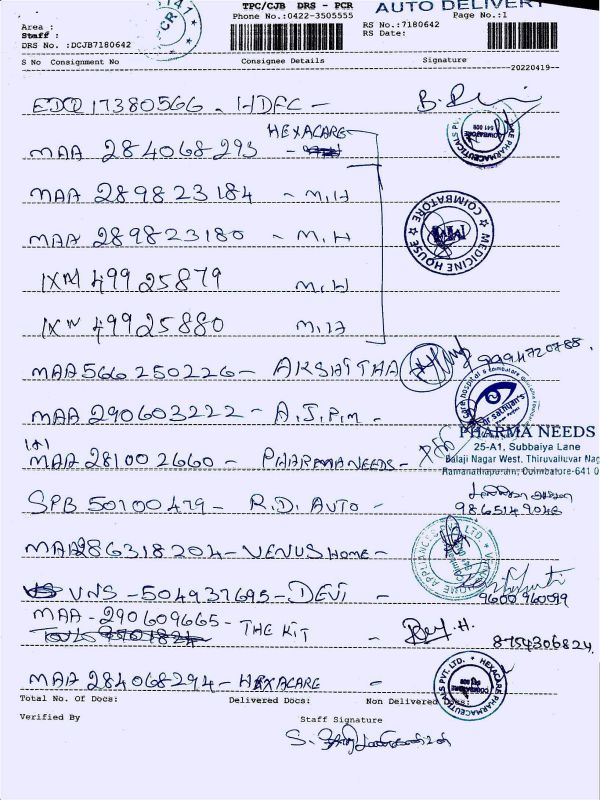 TPC/CJB DRS - PCR
AUTO DELIVERY
Phone No.:0422-3505555
RS No.:7180642
Page No.:1
Area :
Staff :
DRS No. :DCJB7180642
RS Date:
S No Consignment No Consignee Details Signature
20220419
EDQ 17380566 - HDFC -
HEXACARE
MAA 284068293 -
MAA 289823184 - M.H
MAA 289823180 - M.H
IXM 49925879 M.H
IXM 49925880 M.H
MAA 566250226 - AKSHITHA 9994720788.
MAA 290603222 - A.J.P.M -
MAA 281002660 - PHARMA NEEDS -
PHARMA NEEDS
25-A1, Subbaiya Lane
Balaji Nagar West, Thiruvalluvar Nag
Ramanathapuram, Coimbatore-641 0
SPB 50100479 - R.D. AUTO -
9865149046
MAA 286318204 - VENUS HOME -
VNS - 504937695 - DEVI - 9600 960099
MAA - 290609665 - THE KIT - 8754306824
MAA 284068294 - HEXACARE -
MEDICINE HOUSE ☆ COIMBATORE ☆
HEXACARE PHARMACEUTICALS PVT. LTD.
Total No. Of Docs: Delivered Docs: Non Delivered Docs:
Verified By Staff Signature